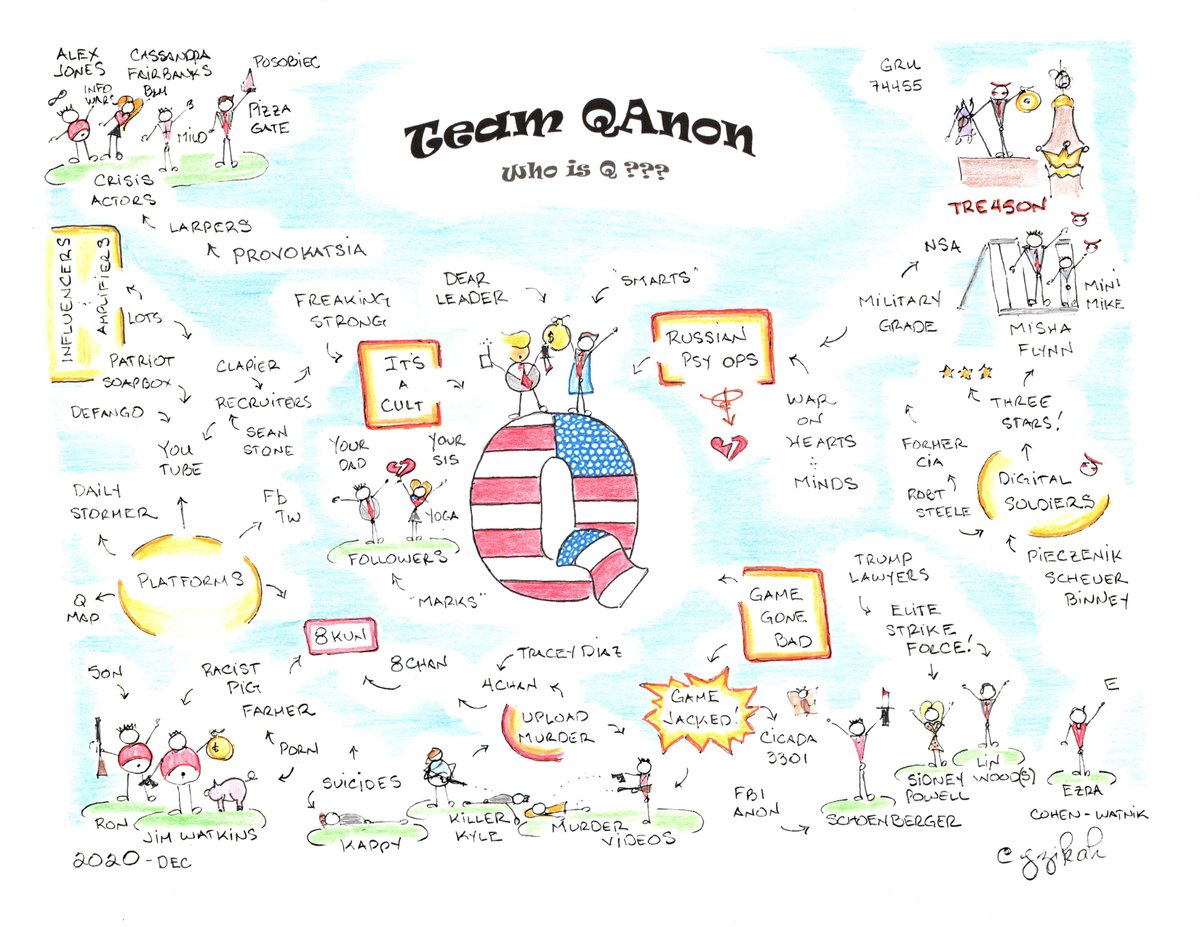 Team QAnon
Who is Q ???
ALEX
JONES
INFO
WARS
CASSANDRA
FAIRBANKS
MILO
POSOBIEC
PIZZA
GATE
CRISIS
ACTORS
LARPERS
PROVOKATSIA
GRU
74455
TRE45ON
NSA
MINI
MIKE
MISHA
FLYNN
MILITARY
GRADE
INFLUENCERS
AMPLIFIERS
LOTS
PATRIOT
SOAPBOX
DEFANGO
YOU
TUBE
CLAPIER
RECRUITERS
SEAN
STONE
FREAKING
STRONG
IT'S
A
CULT
DEAR
LEADER
"SMARTS"
$
RUSSIAN
PSY OPS
WAR
ON
HEARTS
MINDS
THREE
STARS!
FORMER
CIA
ROBT
STEELE
DIGITAL
SOLDIERS
PIECZENIK
SCHEUER
BINNEY
YOUR
DAD
YOUR
SIS
YOGA
FOLLOWERS
"MARKS"
DAILY
STORMER
Fb
TW
PLATFORMS
Q
MAP
8KUN
8CHAN
4CHAN
TRACEY DIAZ
UPLOAD
MURDER
GAME
GONE
BAD
GAME
JACKED!
CICADA
3301
TRUMP
LAWYERS
ELITE
STRIKE
FORCE!
SON
RACIST
PIG
FARMER
PORN
RON
JIM WATKINS
SUICIDES
KAPPY
KILLER
KYLE
MURDER
VIDEOS
FBI
ANON
SCHOENBERGER
SIDNEY
POWELL
LIN
WOOD(S)
E
EZRA
COHEN-WATNIK
2020-DEC